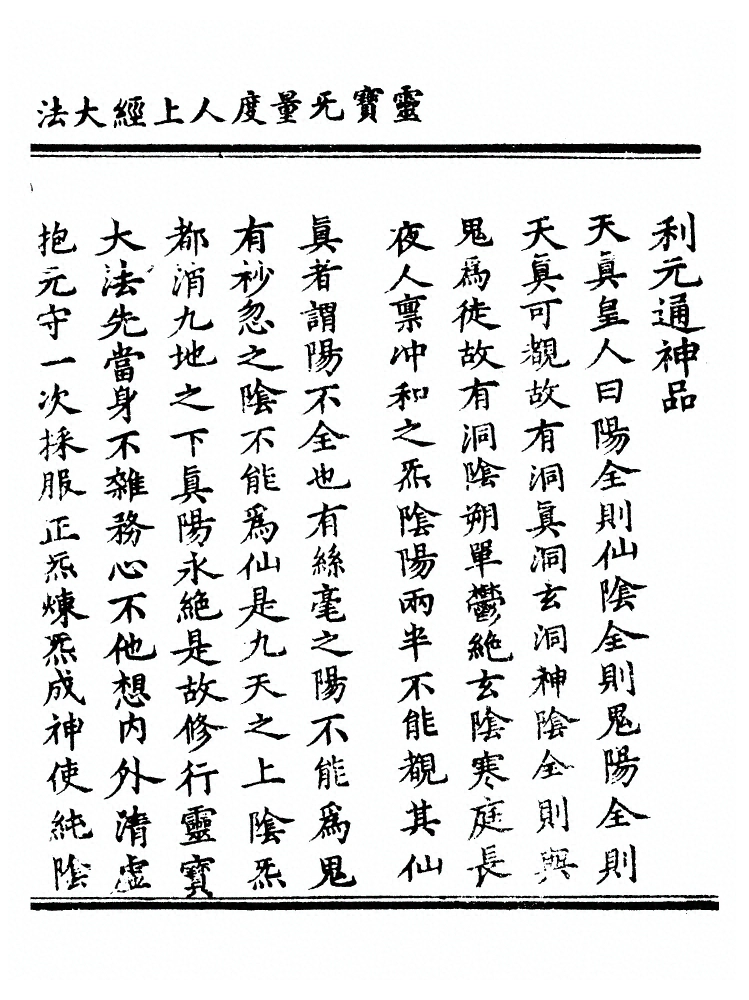 靈寶旡量度人上經大法
利元通神品
天眞皇人曰陽全則仙陰全則鬼陽全則
天眞可覩故有洞眞洞玄洞神陰全則與
鬼爲徒故有洞陰朔單鬱絶玄陰寒庭長
夜人禀冲和之炁陰陽兩半不能覩其仙
眞者謂陽不全也有絲毫之陽不能爲鬼
有秒忽之陰不能爲仙是九天之上陰炁
都消九地之下眞陽永絶是故修行靈寶
大法先當身不雜務心不他想内外清虛
抱元守一次採服正炁煉炁成神使純陰